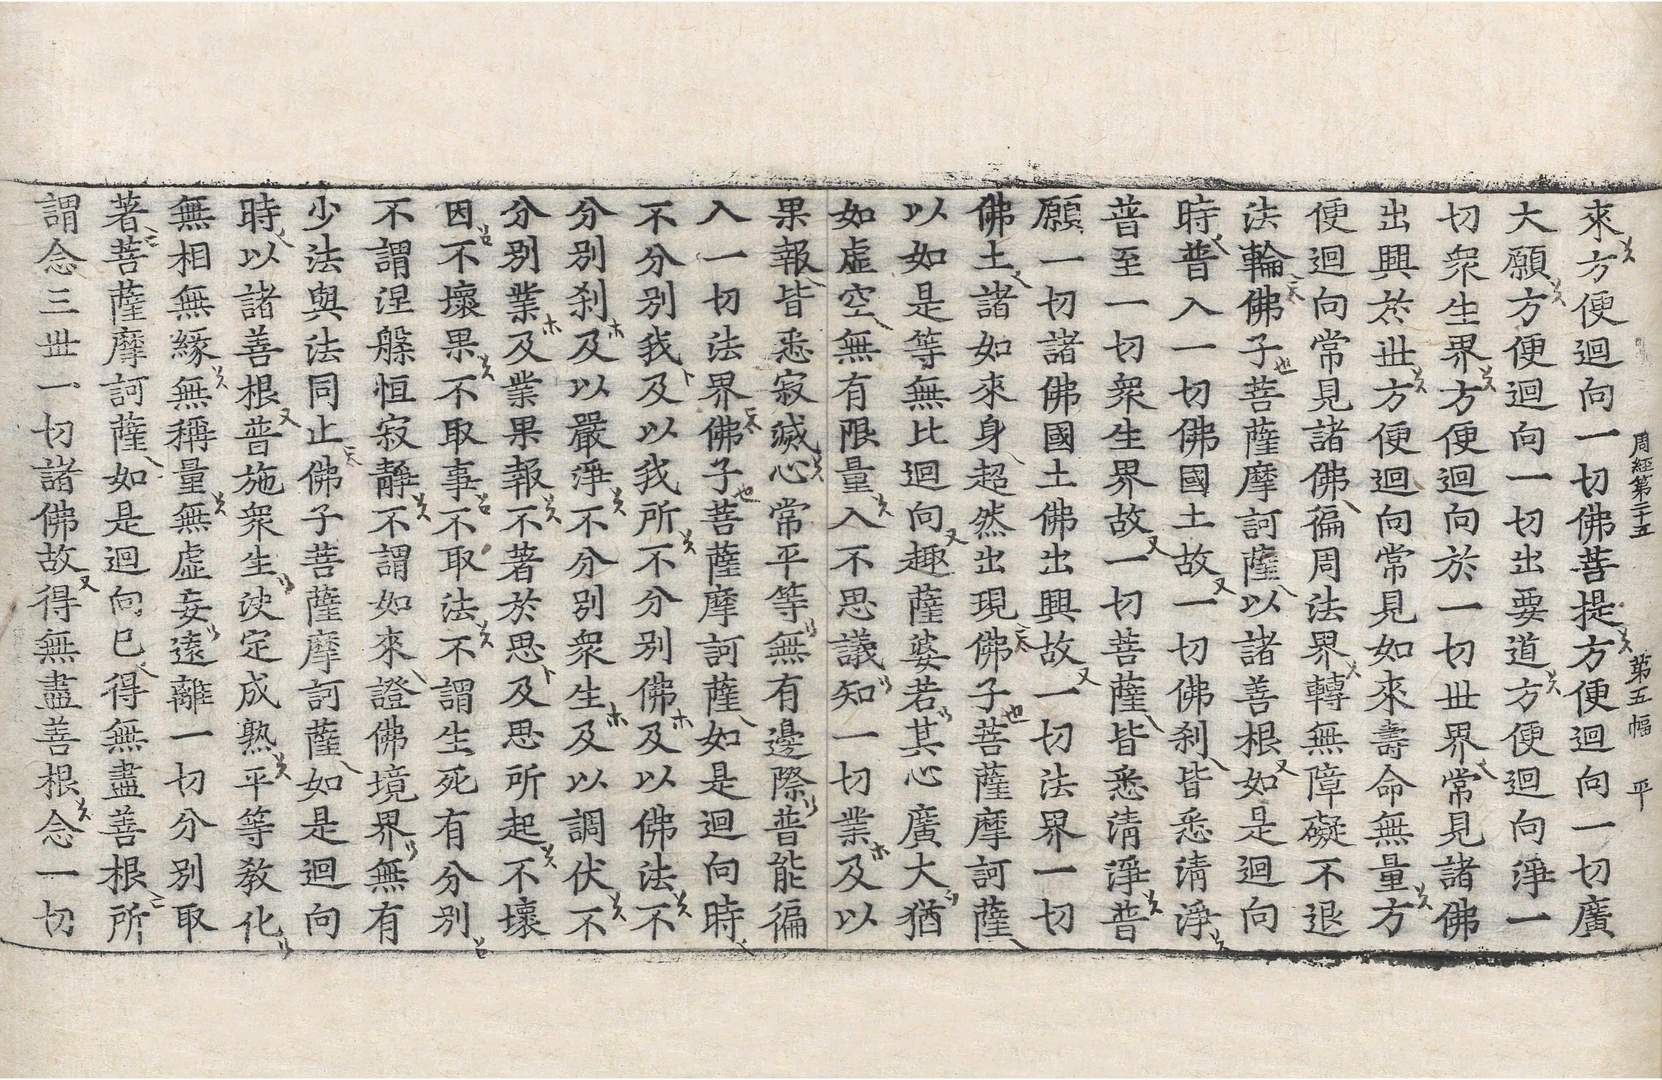 周經第二十五 第五幅 平
來方便迴向一切佛菩提方便迴向一切廣
大願方便迴向一切出要道方便迴向淨一
切衆生界方便迴向於一切世界常見諸佛
出興於世方便迴向常見如來壽命無量方
便迴向常見諸佛徧周法界轉無障礙不退
法輪佛子菩薩摩訶薩以諸善根如是迴向
時普入一切佛國土故一切佛刹皆悉清淨
普至一切衆生界故一切菩薩皆悉清淨普
願一切諸佛國土佛出興故一切法界一切
佛土諸如來身超然出現佛子菩薩摩訶薩
以如是等無比迴向趣薩婆若其心廣大猶
如虛空無有限量入不思議知一切業及以
果報皆悉寂滅心常平等無有邊際普能徧
入一切法界佛子菩薩摩訶薩如是迴向時
不分別我及以我所不分別佛及以佛法不
分別刹及以嚴淨不分別衆生及以調伏不
分別業及業果報不著於思及思所起不壞
因不壞果不取事不取法不謂生死有分別
不謂涅槃恒寂靜不謂如來證佛境界無有
少法與法同止佛子菩薩摩訶薩如是迴向
時以諸善根普施衆生決定成熟平等教化
無相無緣無稱量無虛妄遠離一切分別取
著菩薩摩訶薩如是迴向已得無盡善根所
謂念三世一切諸佛故得無盡善根念一切